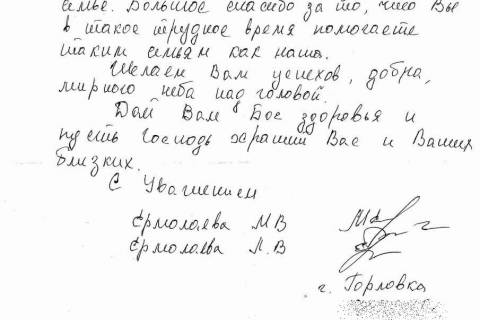 семье. Большое спасибо за то, что Вы
в такое трудное время помогаете
таким семьям как наша.
Желаем Вам успехов, добра,
мирного неба над головой.
Дай Вам Бог здоровья и
пусть Господь хранит Вас и Ваших
близких.
С Уважением
Ермолаева М В
Ермолаева Л.В
г. Горловка